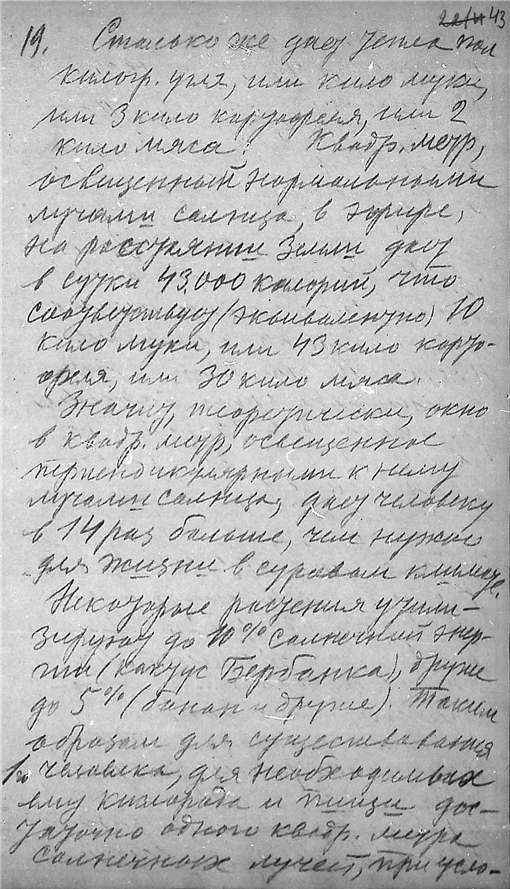 43
19. Столько же дает тепла пол
килогр. угля, или кило муки,
или 3 кило картофеля, или 2
кило мяса. Квадр. метр,
освещенный нормальными
лучами солнца, в эфире,
на расстоянии Земли дает
в сутки 43.000 калорий, что
соответствует (эквивалентно) 10
кило муки, или 43 кило карто-
офеля, или 30 кило мяса.
Значит, теоретически, окно
в квадр. метр, освещенное
перпендикулярными к нему
лучами солнца, дает человеку
в 14 раз больше, чем нужно
для жизни в суровом климате.
Некоторые растения утили-
зируют до 10% солнечной энер-
гии (кактус Бербанка), другие
до 5% (банан и другие). Таким
образом для существования
1го человека, для необходимых
ему кислорода и пищи дос-
таточно одного квадр. метра
солнечных лучей, при усло-